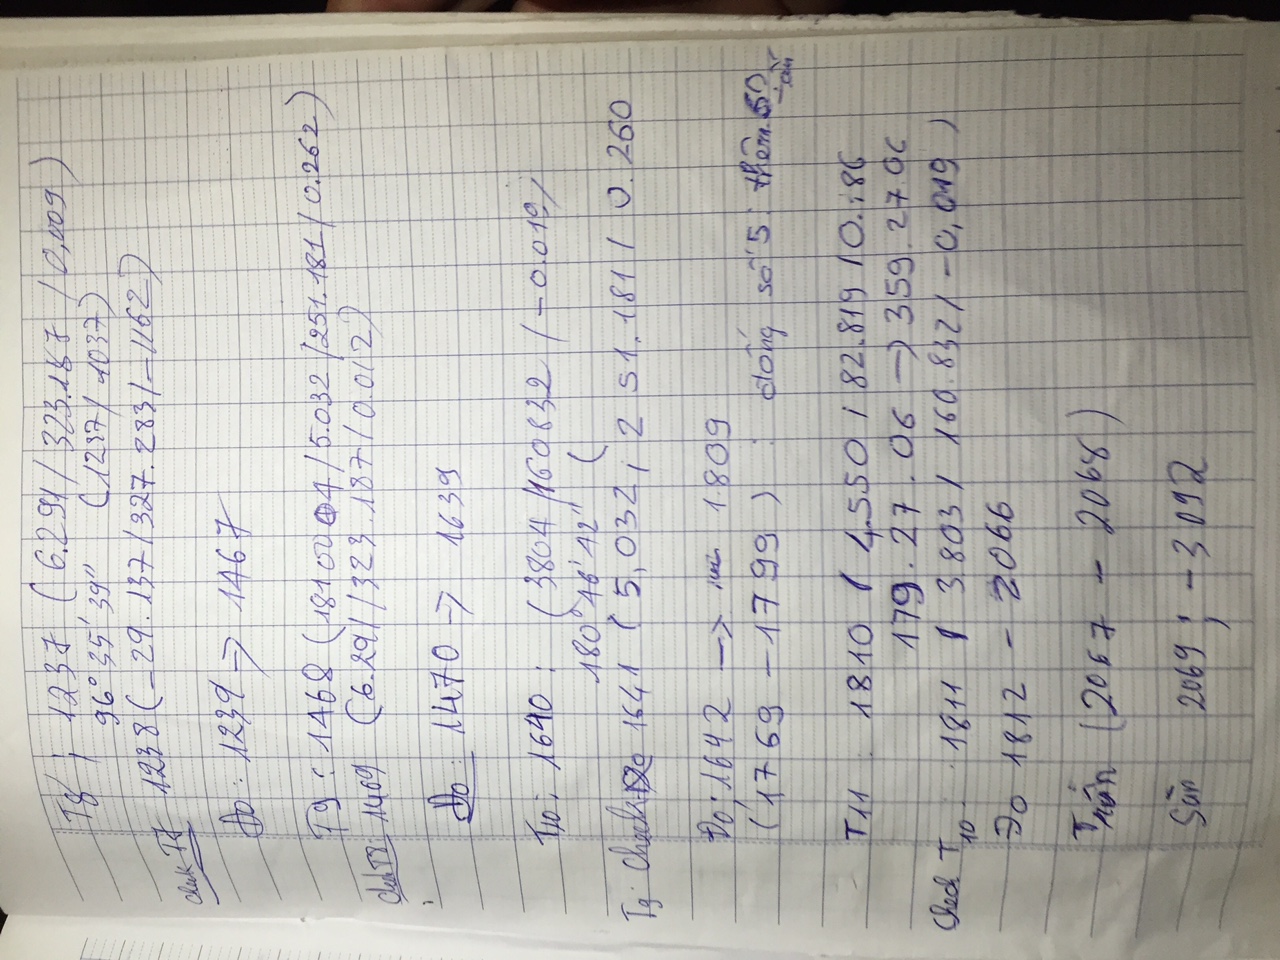 T8 ; 1237 ( 6.291 / 323.187 / 0,009 )
96° 35' 39" ( 1237 / 1037 )
Check T7 1238 ( -29.137 / 327.283 / -1162 )
Đo : 1239 → 1467
T9 : 1468 ( 181 00 04 / 5.032 / 251.181 / 0.262 )
Check T8: 1469 ( 6.291 / 323.187 / 0.012 )
Đo : 1470 → 1639
T10 : 1640 : ( 3804 / 160832 / -0.019 )
180° 46' 42" (
T9 Check 1641 ( 5,032 ; 251.181 / 0.260
Đo ; 1642 → 1809
( 1769 - 1799 ) : đống số 5 : thêm
T11 : 1810 / 4.550 / 82.819 / 0.186
179.27.06 → 359.27.06
Check T10 : 1811 / 3.803 / 160.832 / -0,019 )
Đo 1812 - 2066
Trần ( 2067 - 2068 )
Sàn 2069 ; -3092